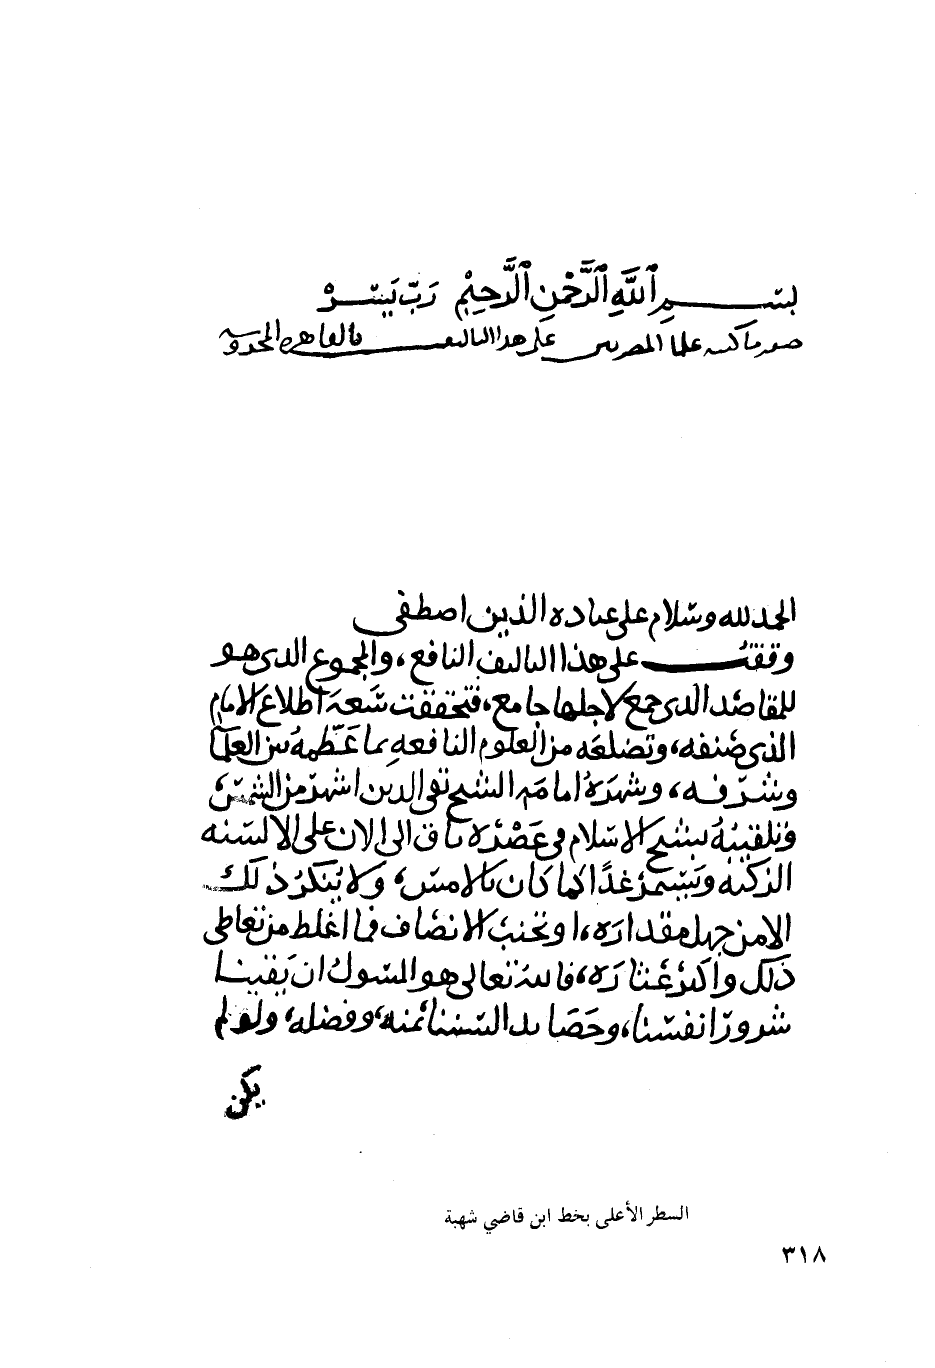 بسم الله الرحمن الرحيم رب يسر
صوره ما كتبه علما المصريين على هذا التاليف بالقاهره المحروسه
الحمد لله وسلام على عباده الذين اصطفى
وقفت على هذا التاليف النافع، والمجموع الذي هو
للمقاصد الذي جمع لاجلها جامع، فتحققت سَعَة اطلاع الامام
الذي صنفه، وتضلعه من العلوم النافعه بما عظمه بين العلما
وشرفه، وشهرة امامة الشيخ تقي الدين اشهر من الشمس،
وتلقيبه بشيخ الاسلام في عصره باق الى الان على الالسنه
الزكيه ويستمر غدًا كما كان بالامس، ولا ينكر ذلك
الا من جهل مقداره، او تجنب الانصاف فما اغلط من تعاطى
ذلك واكثر عثاره، فالله تعالى هو المسول ان يقينا
شرور انفسنا، وحصايد السنتنا بمنه، وفضله، ولو لم
يكن
السطر الأعلى بخط ابن قاضي شهبة
٣١٨